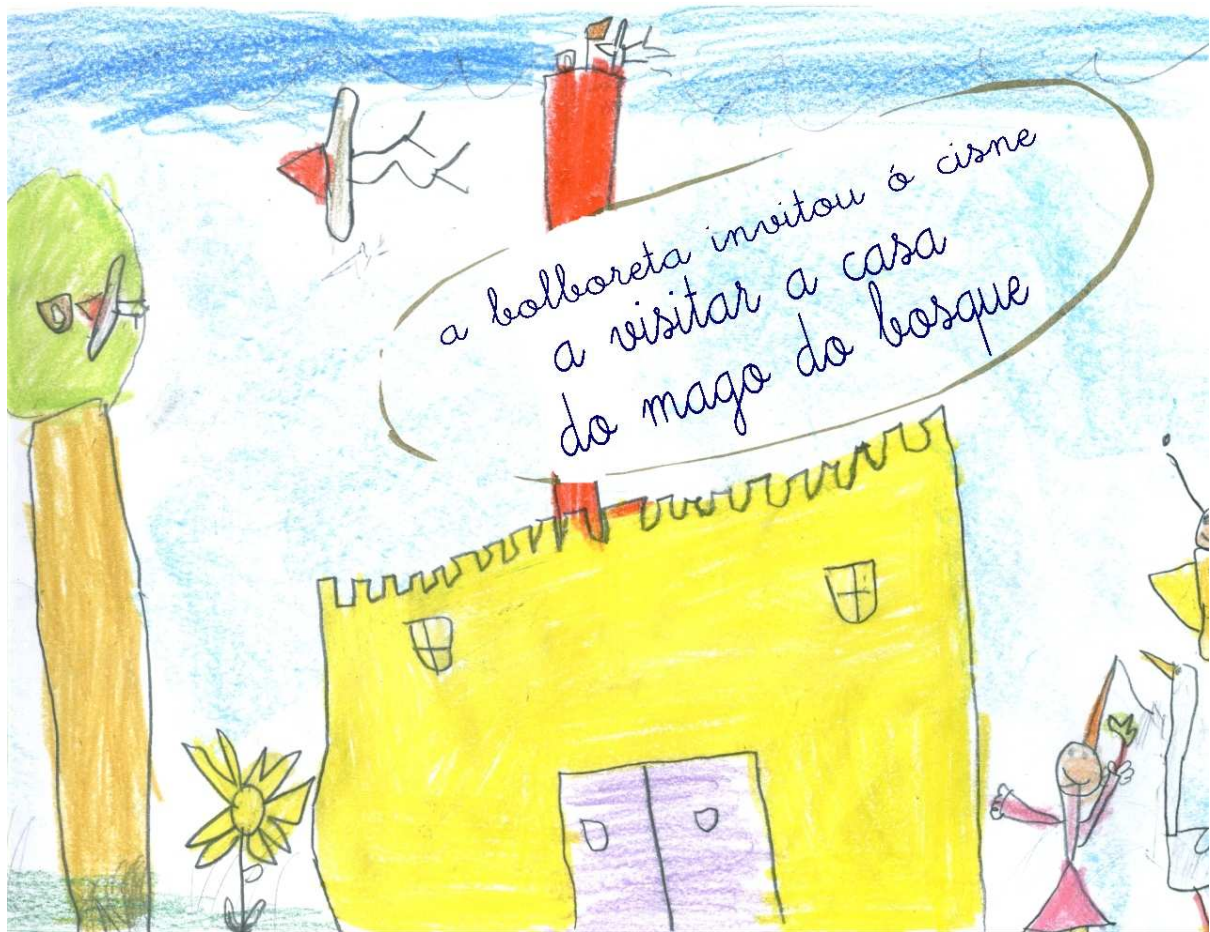 a bolboreta invitou ó cisne
a visitar a casa
do mago do bosque